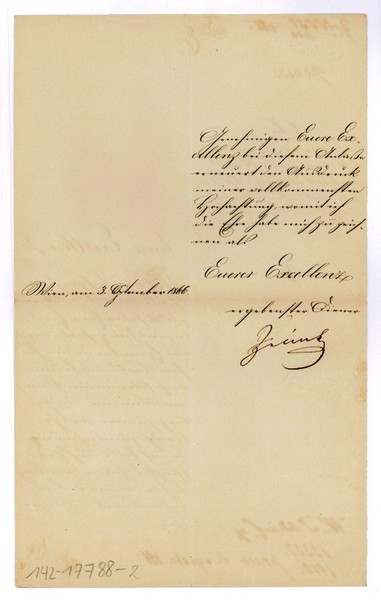 Genehmigen Euere Ex-
cellenz bei diesem Anlasse
erneuert den Ausdruck
meiner vollkommensten
Hochachtung, womit ich
die Ehre habe mich zu zeich-
nen als
Euerer Excellenz
Wien, am 3. September 1866.
ergebenster Diener
142-17788-2